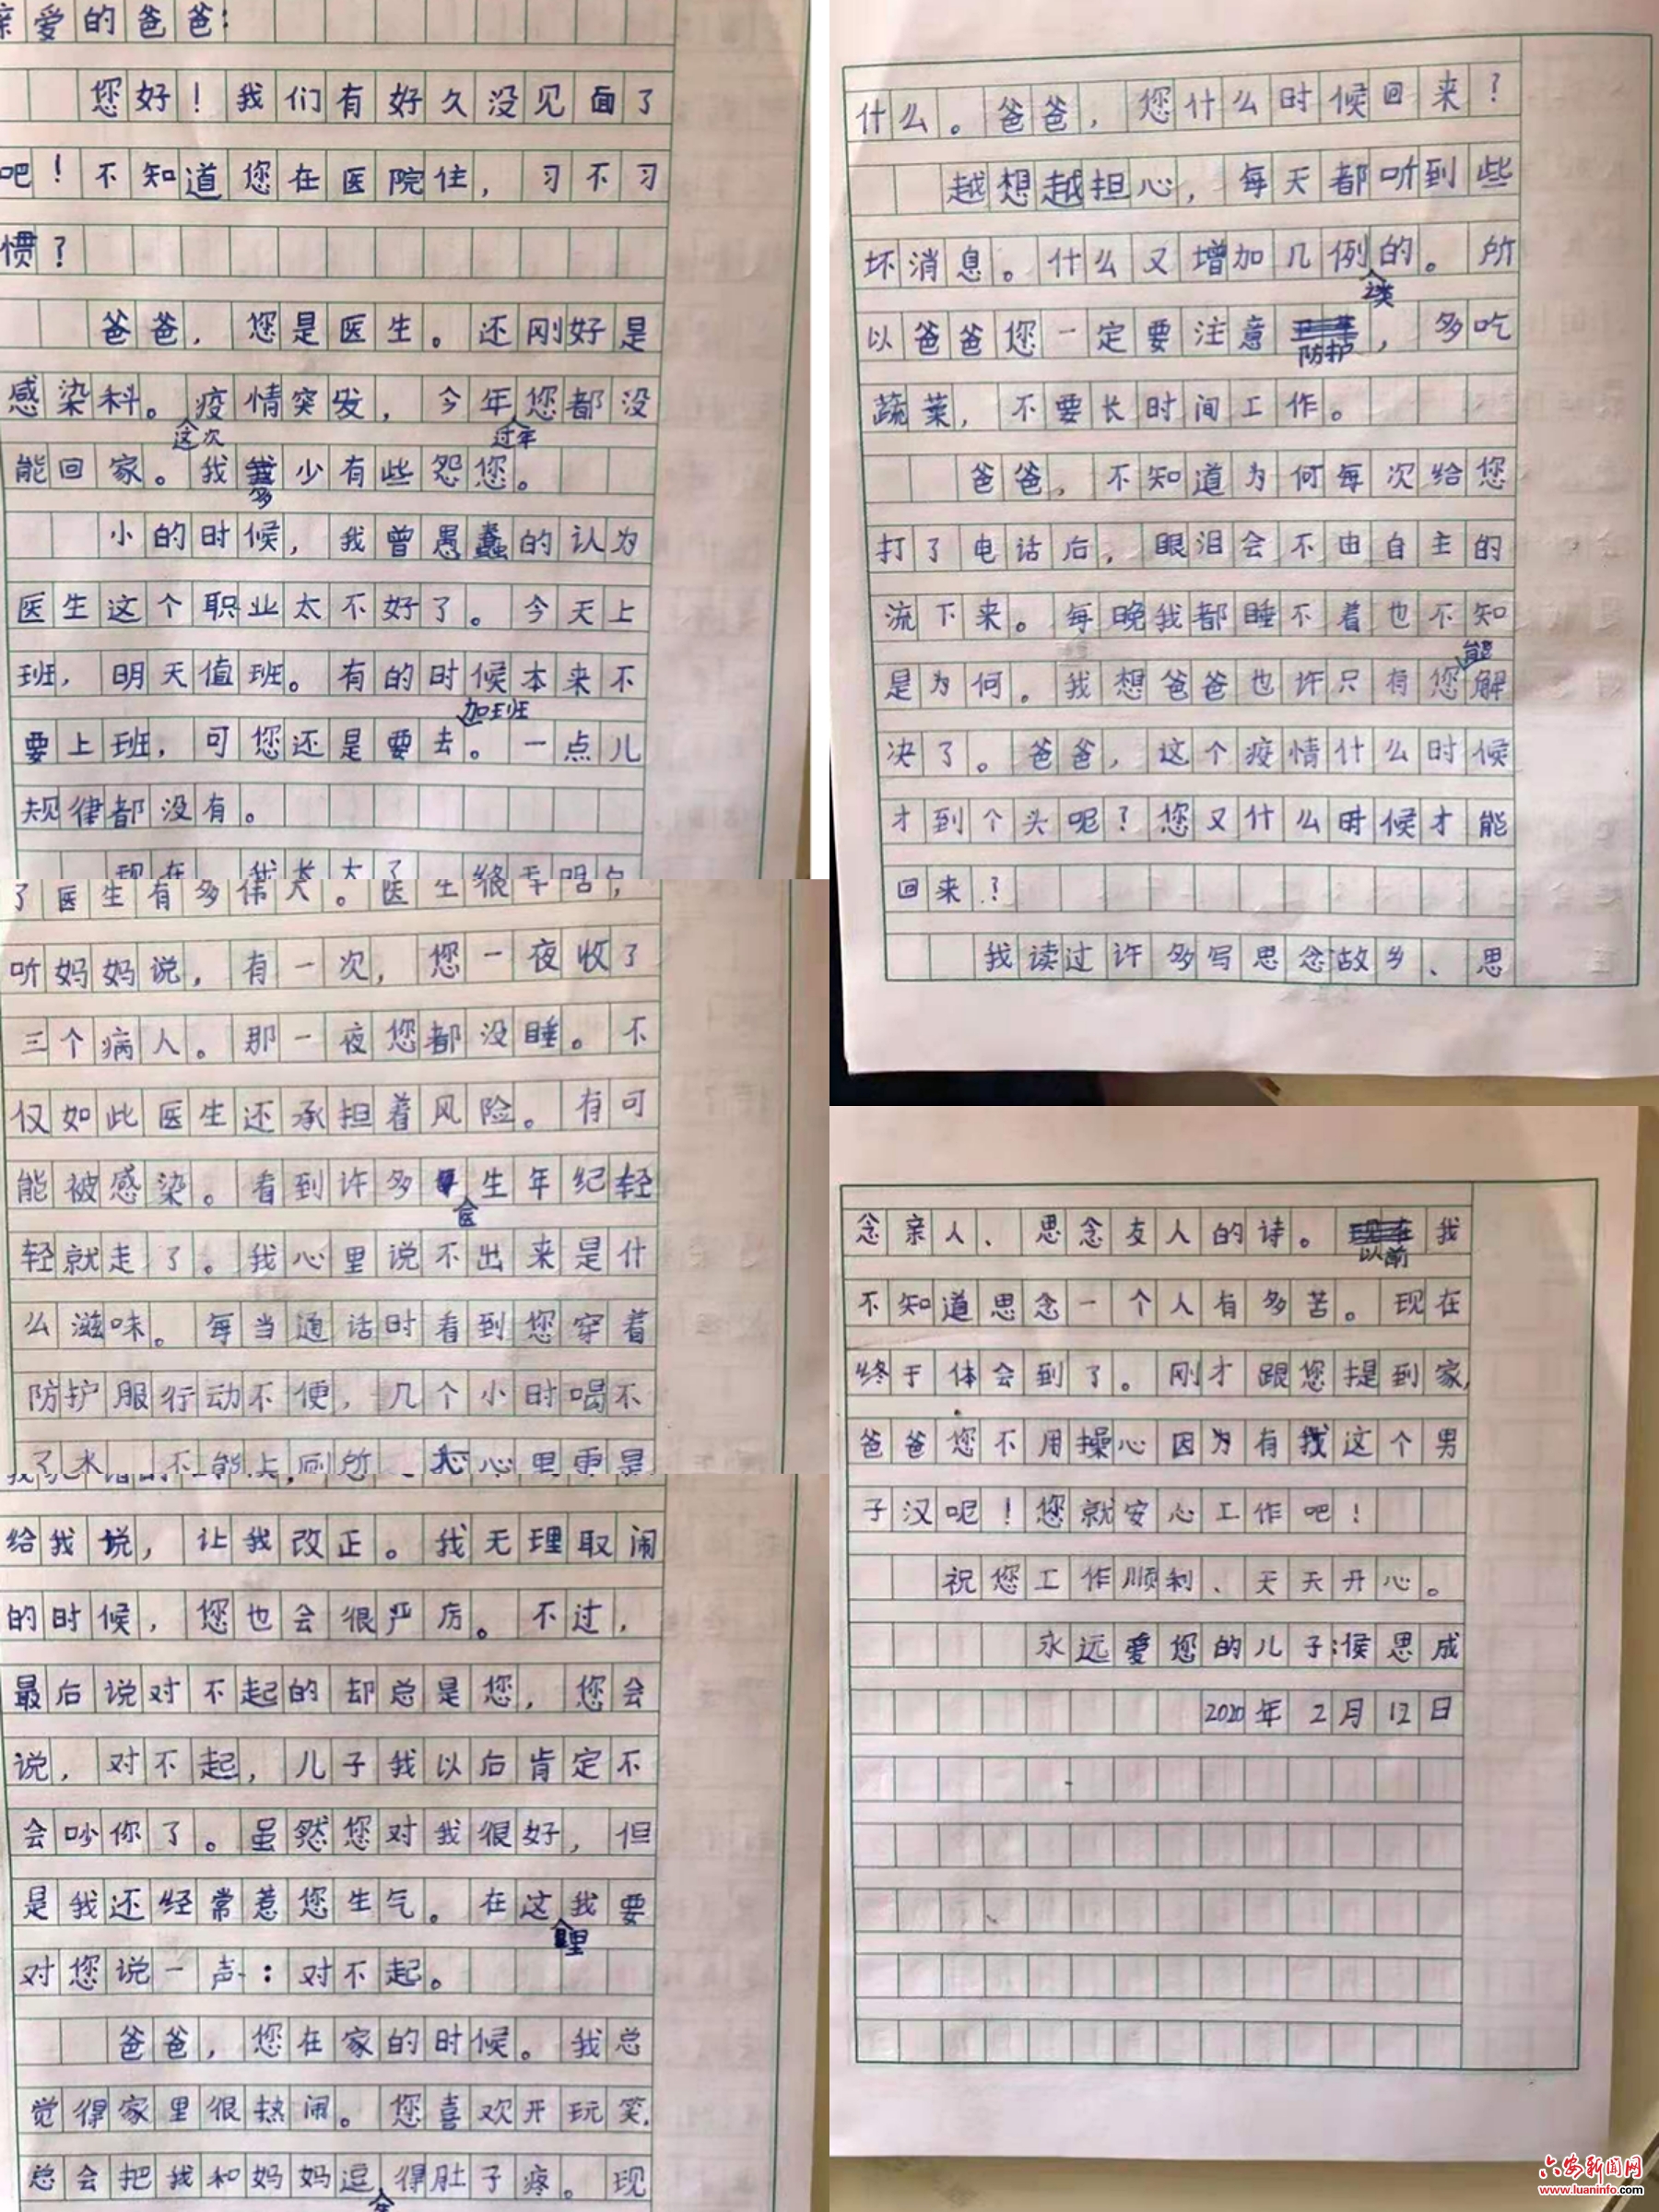 亲爱的爸爸：
您好！我们有好久没见面了
吧！不知道您在医院住，习不习
惯？
爸爸，您是医生。还刚好是
感染科。这次疫情突发，今年过年您都没
能回家。我多少有些怨您。
小的时候，我曾愚蠢的认为
医生这个职业太不好了。今天上
班，明天值班。有的时候本来不
要上班，可您还是要去加班。一点儿
规律都没有。
现在，我长大了
了医生有多伟大。医生终于明白，
听妈妈说，有一次，您一夜收了
三个病人。那一夜您都没睡。不
仅如此医生还承担着风险。有可
能被感染。看到许多医生年纪轻
轻就走了。我心里说不出来是什
么滋味。每当通话时看到您穿着
防护服行动不便，几个小时喝不
了水 不能上厕所 心里更是
给我说，让我改正。我无理取闹
的时候，您也会很严厉。不过，
最后说对不起的却总是您，您会
说，对不起，儿子我以后肯定不
会吵你了。虽然您对我很好，但
是我还经常惹您生气。在这里我要
对您说一声：对不起。
爸爸，您在家的时候。我总
觉得家里很热闹。您喜欢开玩笑，
总会把我和妈妈逗得肚子疼。现
什么。爸爸，您什么时候回来？
越想越担心，每天都听到些
坏消息。什么又增加几例之类的。所
以爸爸您一定要注意防护，多吃
蔬菜，不要长时间工作。
爸爸，不知道为何每次给您
打了电话后，眼泪会不由自主的
流下来。每晚我都睡不着也不知
是为何。我想爸爸也许只有您能解
决了。爸爸，这个疫情什么时候
才到个头呢？您又什么时候才能
回来？
我读过许多写思念故乡、思
念亲人、思念友人的诗。以前我
不知道思念一个人有多苦。现在
终于体会到了。刚才跟您提到家，
爸爸您不用操心因为有我这个男
子汉呢！您就安心工作吧！
祝您工作顺利、天天开心。
永远爱您的儿子：侯思成
2020年2月12日
六安新闻网
www.luaninfo.com